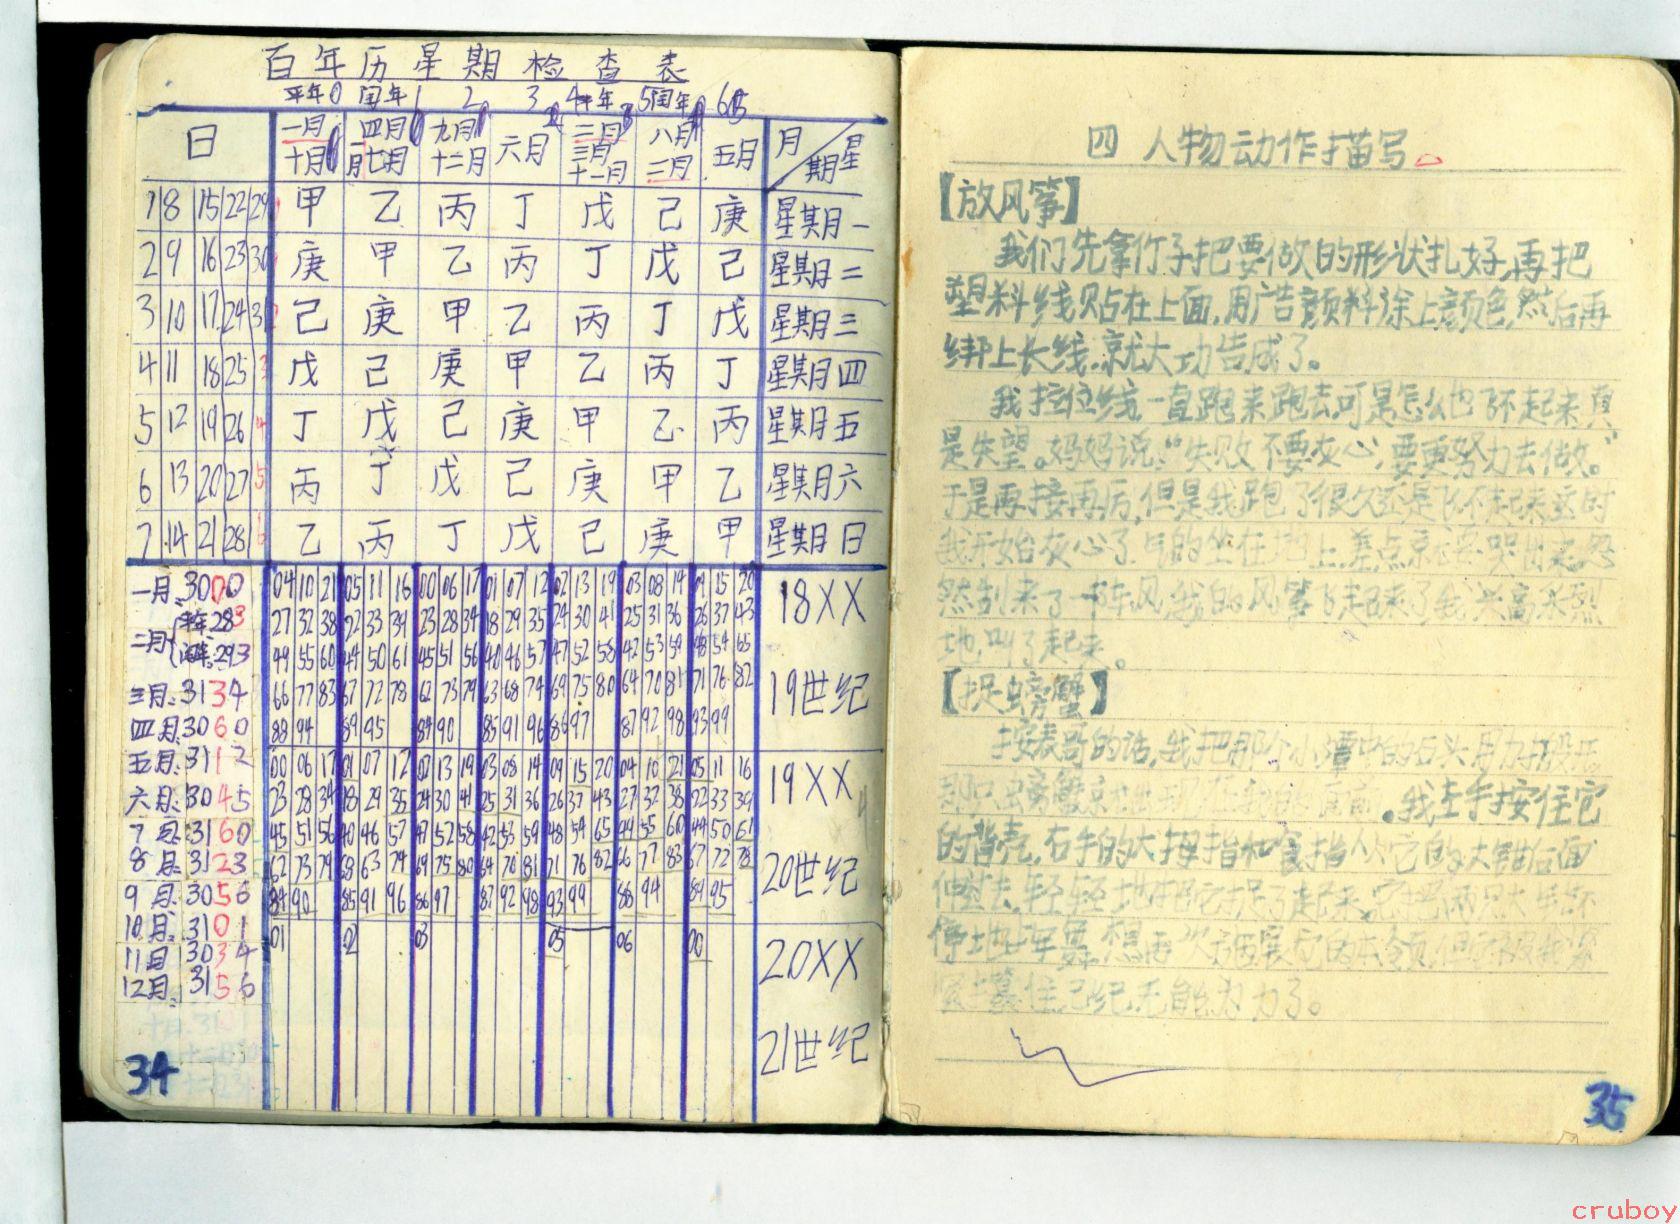 百年历星期检查表
平年0 闰年1 2 3 4平年 5闰年 6
日 一月 四月 九月 六月 二月 八月 五月 月 星
十月 七月 十二月 三月 二月 期
十一月
1 8 15 22 29 甲 乙 丙 丁 戊 己 庚 星期一
2 9 16 23 30 庚 甲 乙 丙 丁 戊 己 星期二
3 10 17 24 31 己 庚 甲 乙 丙 丁 戊 星期三
4 11 18 25 3 戊 己 庚 甲 乙 丙 丁 星期四
5 12 19 26 4 丁 戊 己 庚 甲 乙 丙 星期五
6 13 20 27 5 丙 丁 戊 己 庚 甲 乙 星期六
7 14 21 28 6 乙 丙 丁 戊 己 庚 甲 星期日
一月:3000 04 10 21 05 11 16 00 06 17 01 07 12 02 13 19 03 08 14 09 15 20 18XX
二月 平年283 27 32 38 22 33 39 23 28 34 18 29 35 24 30 41 25 31 36 26 37 43
293 49 55 60 44 50 61 45 51 56 40 46 57 47 52 58 42 53 59 48 54 65
三月:3134 66 77 83 67 72 78 62 73 79 63 68 74 69 75 80 64 70 81 71 76 82 19世纪
四月:3060 88 94 89 95 84 90 85 91 96 86 97 87 92 98 93 99
五月:3112 00 06 17 01 07 12 02 13 19 03 08 14 09 15 20 04 10 21 05 11 16 19XX
六月:3045 23 28 34 18 29 35 24 30 41 25 31 36 26 37 43 27 32 38 22 33 39
7月:3160 45 51 56 40 46 57 47 52 58 42 53 59 48 54 65 49 55 60 44 50 61
8月:3123 62 73 79 68 63 74 69 75 80 64 70 81 71 76 82 66 77 83 67 72 78 20世纪
9月:3056 84 90 85 91 96 86 97 87 92 98 93 99 88 94 89 95
10月:3101 01 02 03 05 06 00 20XX
11月:3034
12月:3156
21世纪
34
四 人物动作描写
【放风筝】
我们先拿竹子把要做的形状扎好,再把
塑料线贴在上面,用广告颜料涂上颜色,然后再
绑上长线.就大功告成了。
我拉住线一直跑来跑去,可是怎么也飞不起来,真
是失望。妈妈说:“失败不要灰心,要更努力去做。”
于是再接再厉,但是我跑了很久还是飞不起来,这时
我开始灰心了,气的坐在地上.差点就要哭出来.忽
然刮来了一阵风,我的风筝飞起来了,我兴高采烈
地叫了起来。
【捉螃蟹】
按表哥的话,我把那个小潭中的石头用力
那只螃蟹就出现。我左手按住它
的背壳,右手的大拇指和食指从它的大钳后面
伸进去,轻轻地把它捉了起来。它把两只大
停地,想再次施展它的本领,但
住,已经无能为力了。
35
cruboy